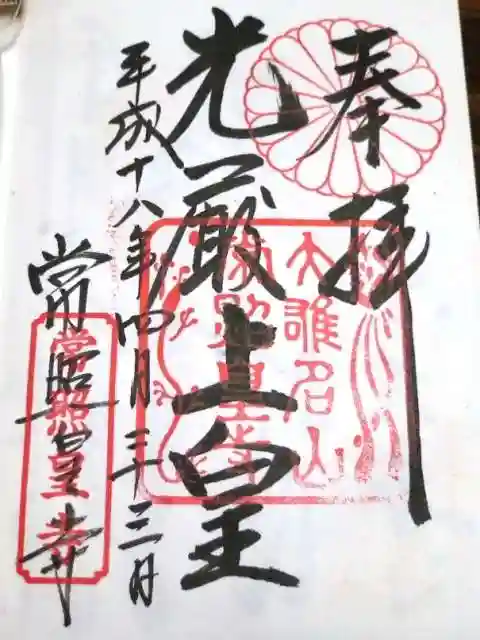 奉拝
大雄名山
光厳上皇
平成十八年四月二十三日
常照皇寺
常照皇寺